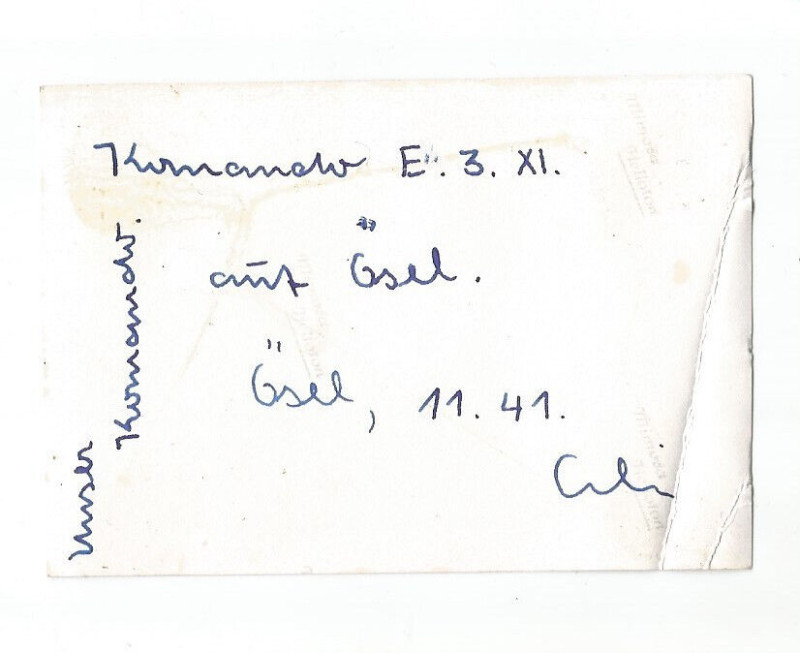 Komando E. 3. XI.
auf Ösel.
Ösel, 11. 41.
Unser Komando.